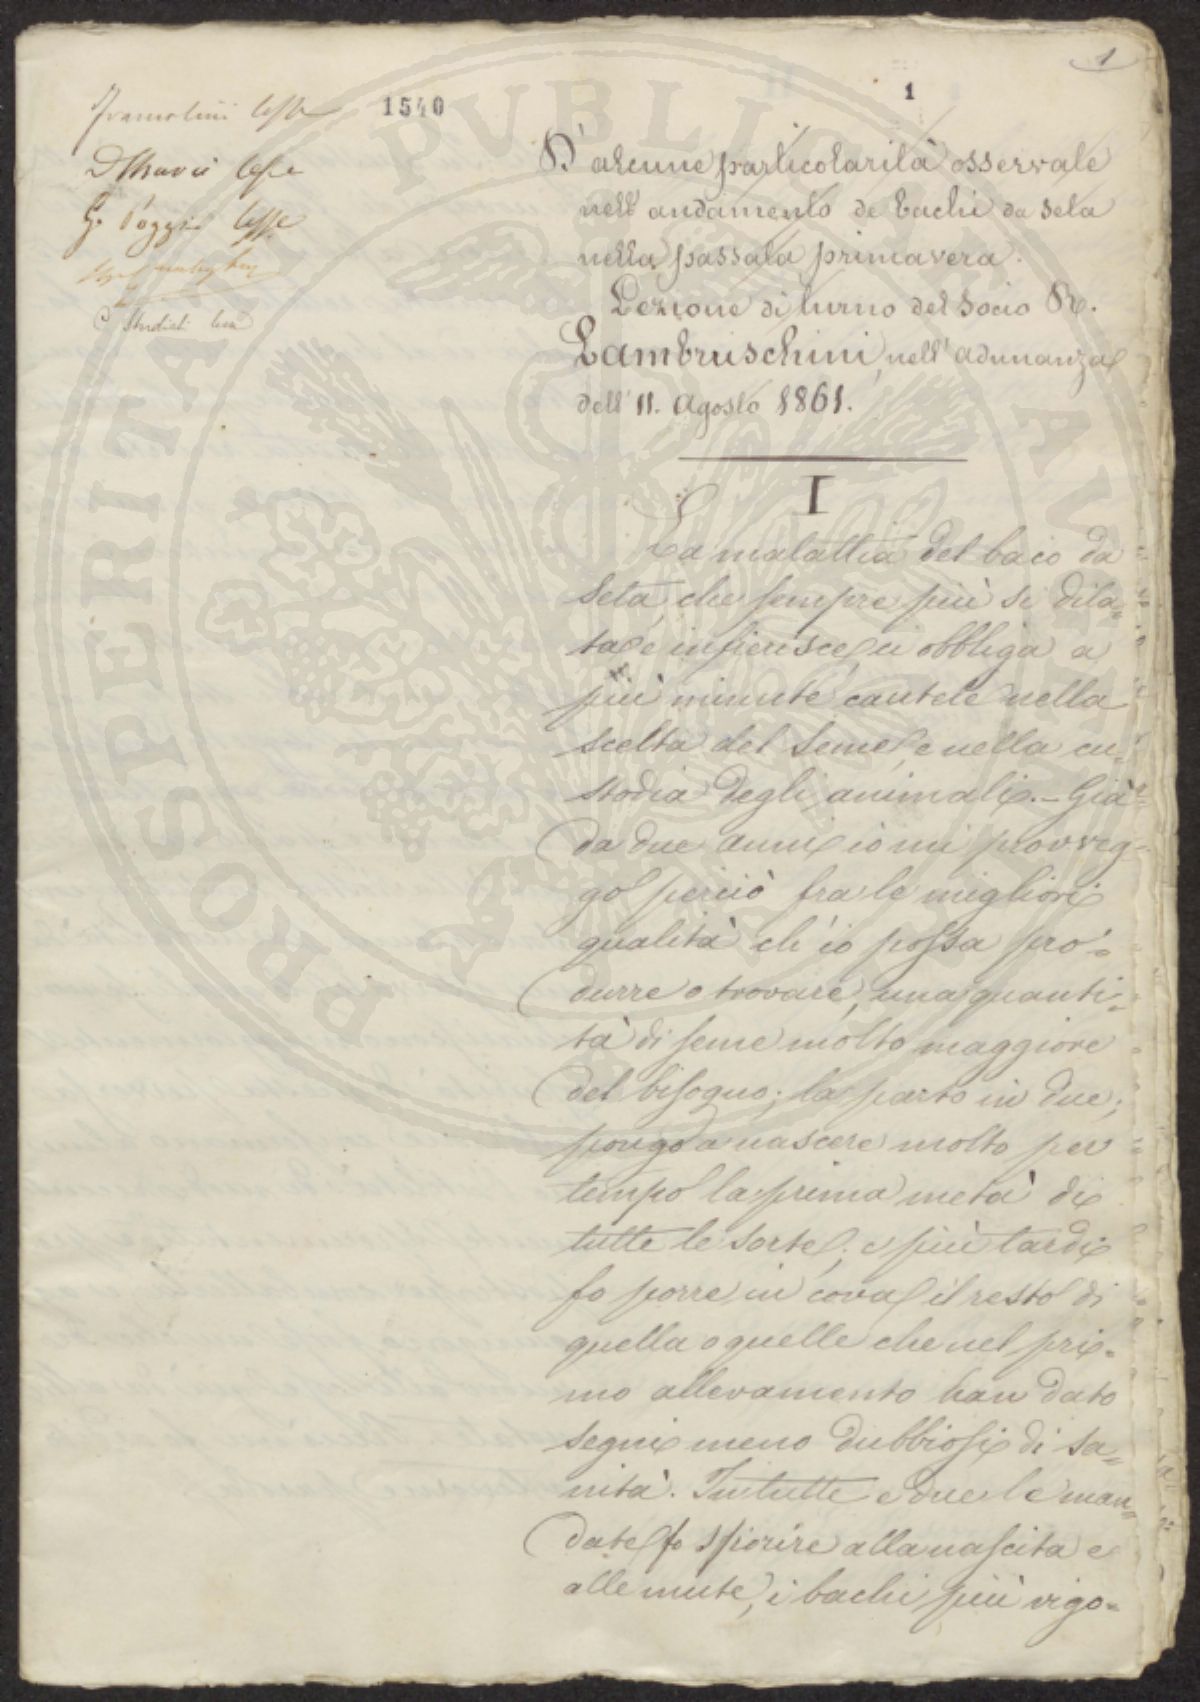 1
1540
1
lesse
lesse
G. Poggi lesse
C. Studiati
D'alcune particolarità osservate
nell'andamento de' bachi da seta
nella passata primavera.
Lezione di turno del socio R.
Lambruschini, nell'adunanza
dell'11. Agosto 1861.
I
La malattia del baco da
seta, che sempre più si dila=
ta e inferisce, ci obbliga a
più minute cautele nella
scelta del seme, e nella cu=
stodia degli animali. - Già
da due anni io mi provveg=
go perciò fra le migliori
qualità ch'io possa pro=
durre o trovare, una quanti=
tà di seme molto maggiore
del bisogno; la parto in due;
pongo a nascere molto per
tempo la prima metà di
tutte le sorte; e più tardi
fo porre in cova il resto di
quella o quelle che nel pri=
mo allevamento han dato
segni meno dubbiosi di sa=
nità. In tutte e due le man=
date fo sfiorire alla nascita e
alle mute, i bachi più vigo=
PROSPERITATI PUBLICAE AUGENDAE